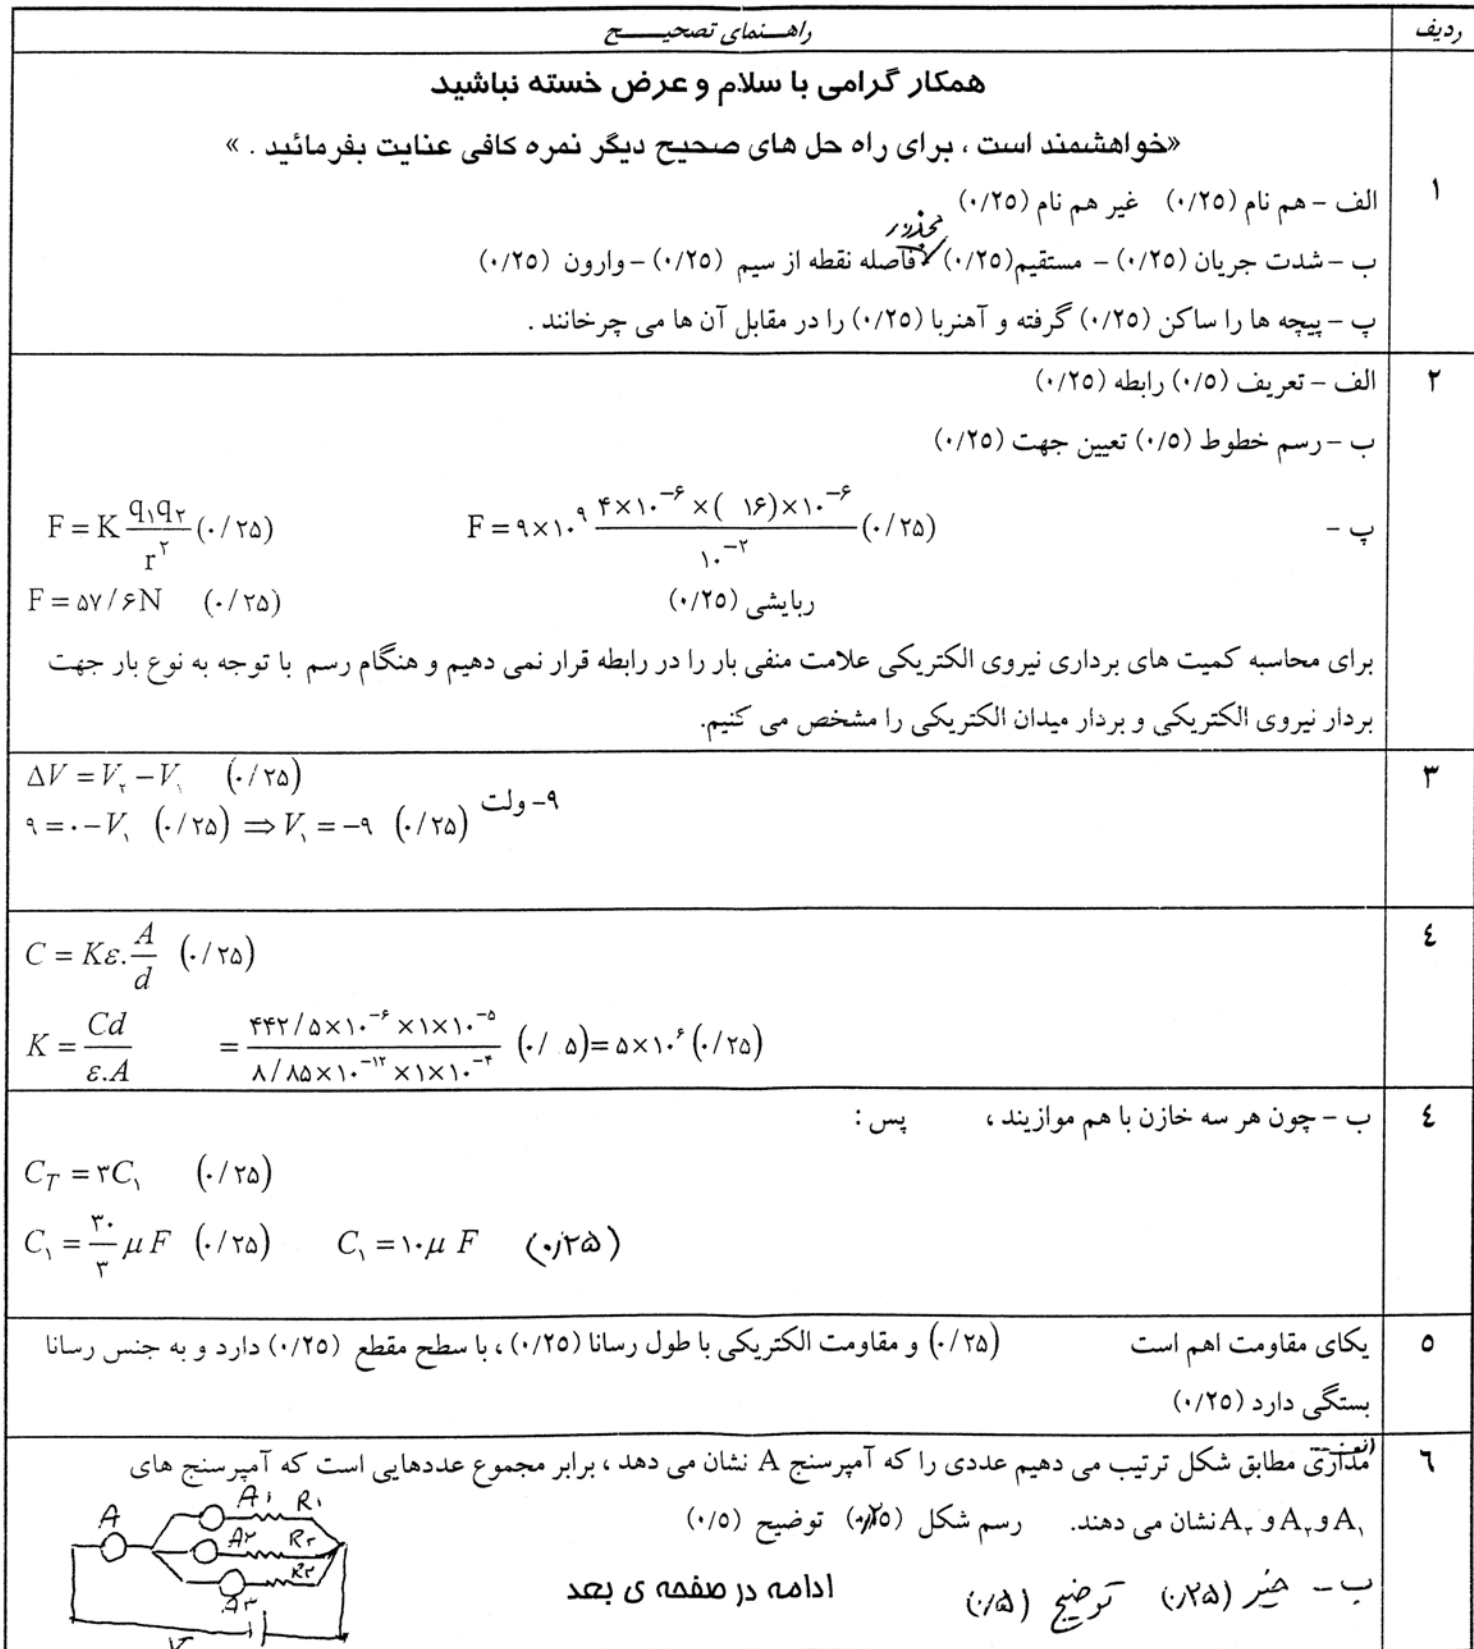 ردیف راهنمای تصحیح
همکار گرامی با سلام و عرض خسته نباشید
«خواهشمند است ، برای راه حل های صحیح دیگر نمره کافی عنایت بفرمائید . »
۱ الف – هم نام (۰/۲۵) غیر هم نام (۰/۲۵)
مجذور
ب – شدت جریان (۰/۲۵) – مستقیم(۰/۲۵) فاصله نقطه از سیم (۰/۲۵) – وارون (۰/۲۵)
پ – پیچه ها را ساکن (۰/۲۵) گرفته و آهنربا (۰/۲۵) را در مقابل آن ها می چرخانند .
۲ الف – تعریف (۰/۵) رابطه (۰/۲۵)
ب – رسم خطوط (۰/۵) تعیین جهت (۰/۲۵)
پ – F = K q۱q۲/r^۲ (۰/۲۵) F = ۹×۱۰^۹ ۴×۱۰^-۶ ×( ۱۶)×۱۰^-۶/۱۰^-۲ (۰/۲۵)
F = ۵۷/۶N (۰/۲۵) ربایشی (۰/۲۵)
برای محاسبه کمیت های برداری نیروی الکتریکی علامت منفی بار را در رابطه قرار نمی دهیم و هنگام رسم با توجه به نوع بار جهت
بردار نیروی الکتریکی و بردار میدان الکتریکی را مشخص می کنیم.
۳ ΔV = V۲ – V۱ (۰/۲۵)
۹ = ۰ – V۱ (۰/۲۵) ⇒ V۱ = –۹ (۰/۲۵) ۹- ولت
۴ C = Kε۰ A/d (۰/۲۵)
K = Cd/ε۰A = ۴۴۲/۵×۱۰^-۶ ×۱×۱۰^-۵/۸/۸۵×۱۰^-۱۲ ×۱×۱۰^-۴ (۰/ ۵) = ۵×۱۰^۶ (۰/۲۵)
۴ ب – چون هر سه خازن با هم موازیند ، پس :
C_T = ۳C۱ (۰/۲۵)
C۱ = ۳۰/۳ μF (۰/۲۵) C۱ = ۱۰μ F (۰/۲۵)
۵ یکای مقاومت اهم است (۰/۲۵) و مقاومت الکتریکی با طول رسانا (۰/۲۵) ، با سطح مقطع (۰/۲۵) دارد و به جنس رسانا
بستگی دارد (۰/۲۵)
۶ الف– مداری مطابق شکل ترتیب می دهیم عددی را که آمپرسنج A نشان می دهد ، برابر مجموع عددهایی است که آمپرسنج های
A۱ و A۲ و A۳ نشان می دهند. رسم شکل (۰/۲۵) توضیح (۰/۵)
A A۱ R۱
A۲ R۲
R۳
A۳
V
ب – خیر (۰/۲۵) توضیح (۰/۵) ادامه در صفحه ی بعد